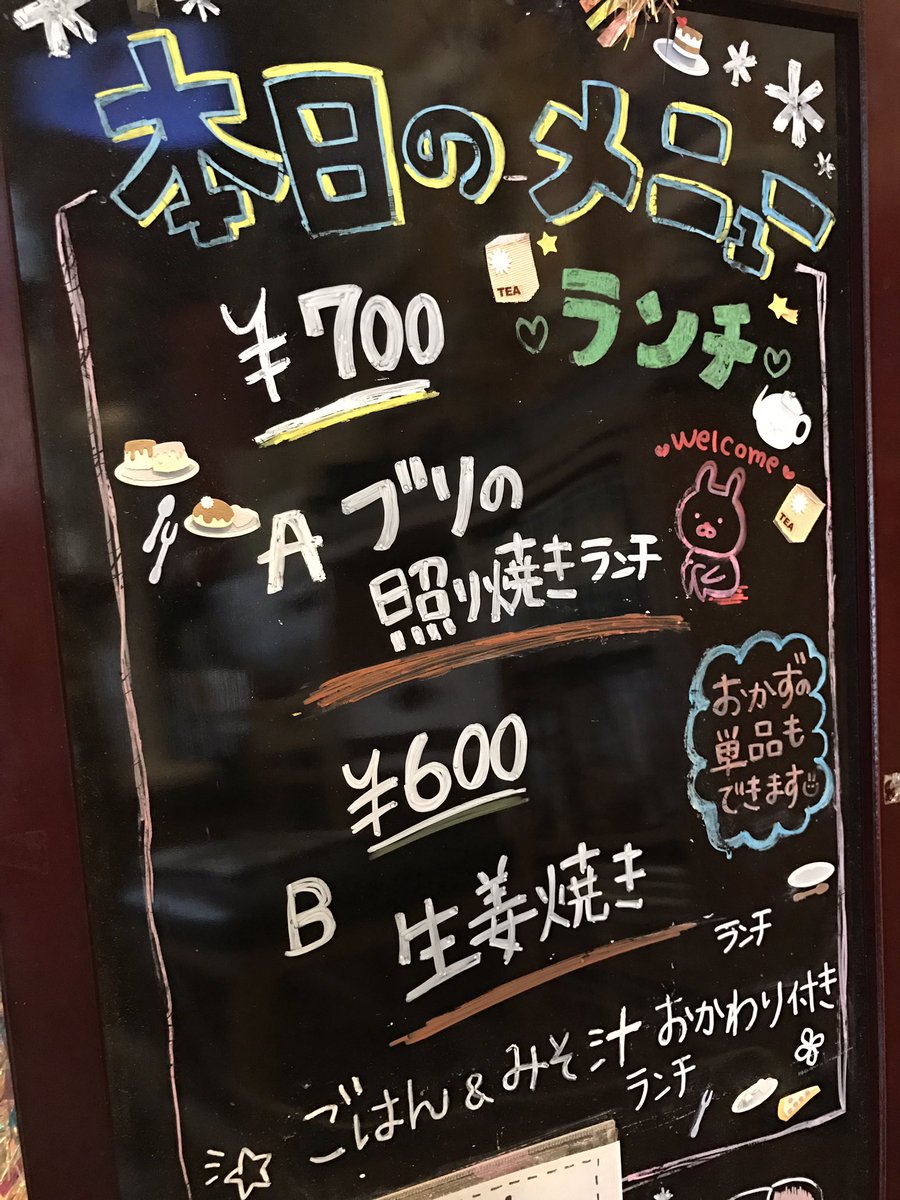 本日のメニュー
TEA
ランチ
¥700
welcome
TEA
A ブリの
照り焼きランチ
おかずの
単品も
できます
¥600
B 生姜焼き
ランチ
ごはん&みそ汁 おかわり付き
ランチ